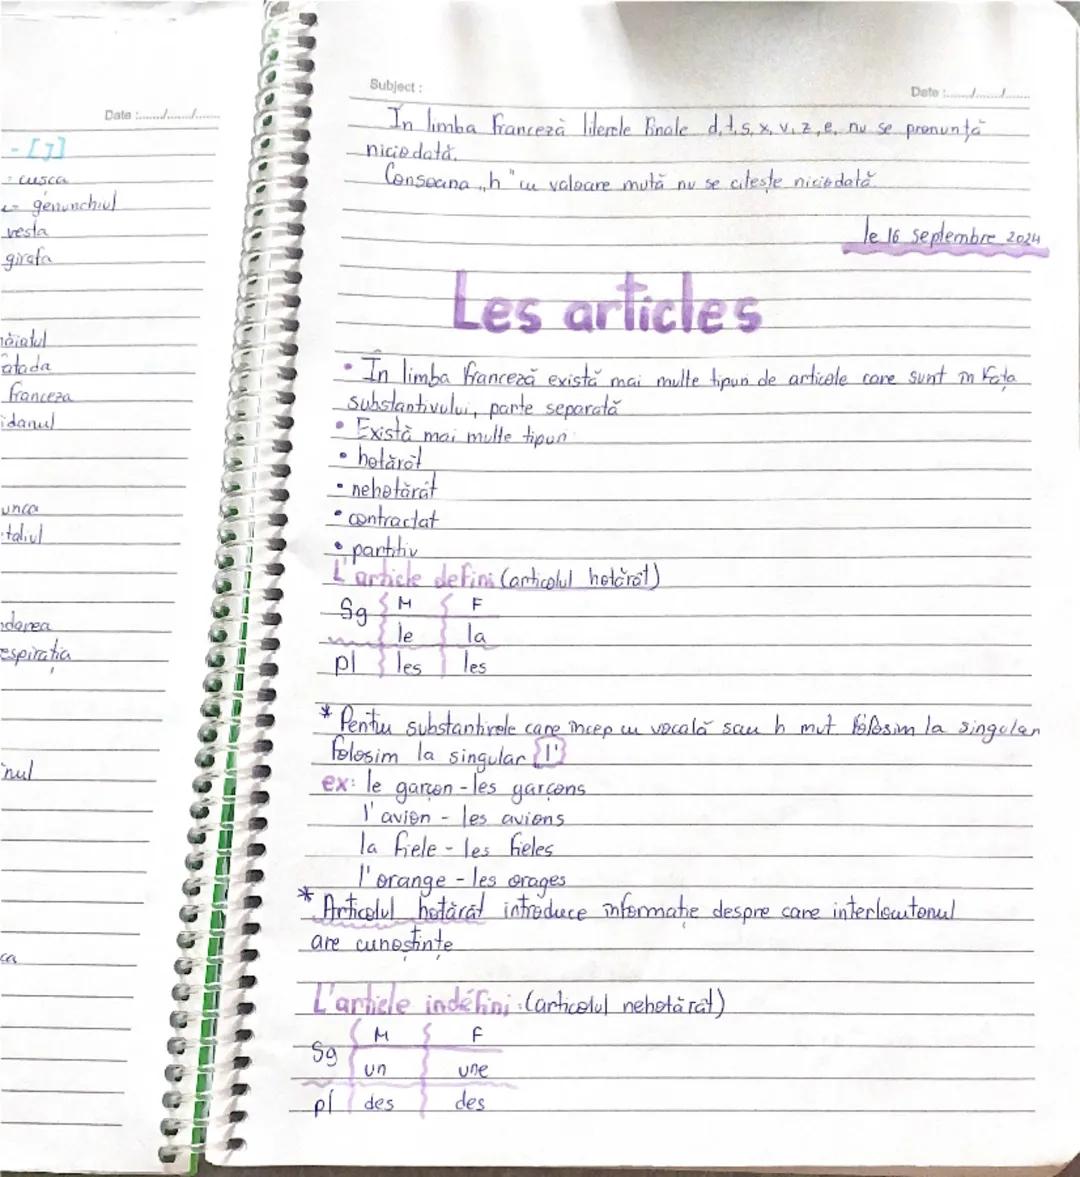 Date :....../....../......
- [J]
: cusca
genunchiul
vesta
girafa
franceza
Subject :
Date :....../....../......
În limba franceză literele finale d, t, s, x, v, z, e, nu se pronunță
niciodată.
Consoana „h" cu valoare mută nu se citește niciodată.
le 16 septembre 2024
Les articles
• În limba franceză există mai multe tipuri de articole care sunt în fața
substantivului, parte separată
• Există mai multe tipuri:
• hotărât
• nehotărât
• contractat
• partitiv
L'article defini (articolul hotărât)
Sg M F
le la
pl les les
* Pentru substantivele care încep cu vocală sau h mut folosim la singular
folosim la singular l'
ex: le garçon - les garçons
l'avion - les avions
la fiele - les fieles
l'orange - les orages
* Articolul hotărât introduce informație despre care interlocutorul
are cunoștințe
L'article indéfini (articolul nehotărât)
M F
Sg un une
pl des des